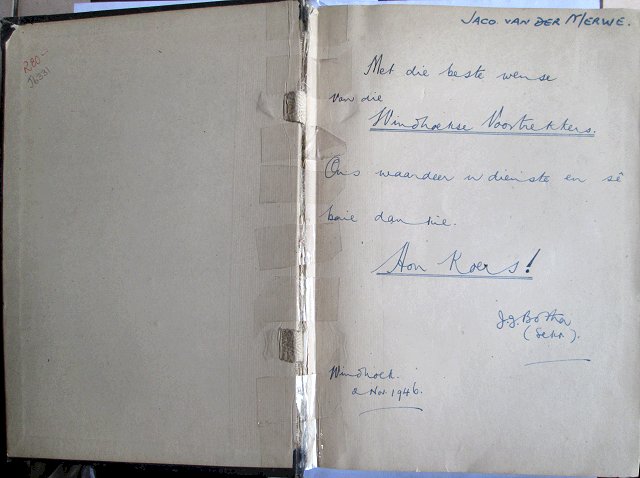 R80-
J6331
JACO VAN DER MERWE.
Met die beste wense
van die
Windhoekse Voortrekkers.
Ons waardeer u dienste en sê
baie dankie.
Hou Koers!
J.J. Botha
(Sekr.).
Windhoek.
2 Nov. 1946.